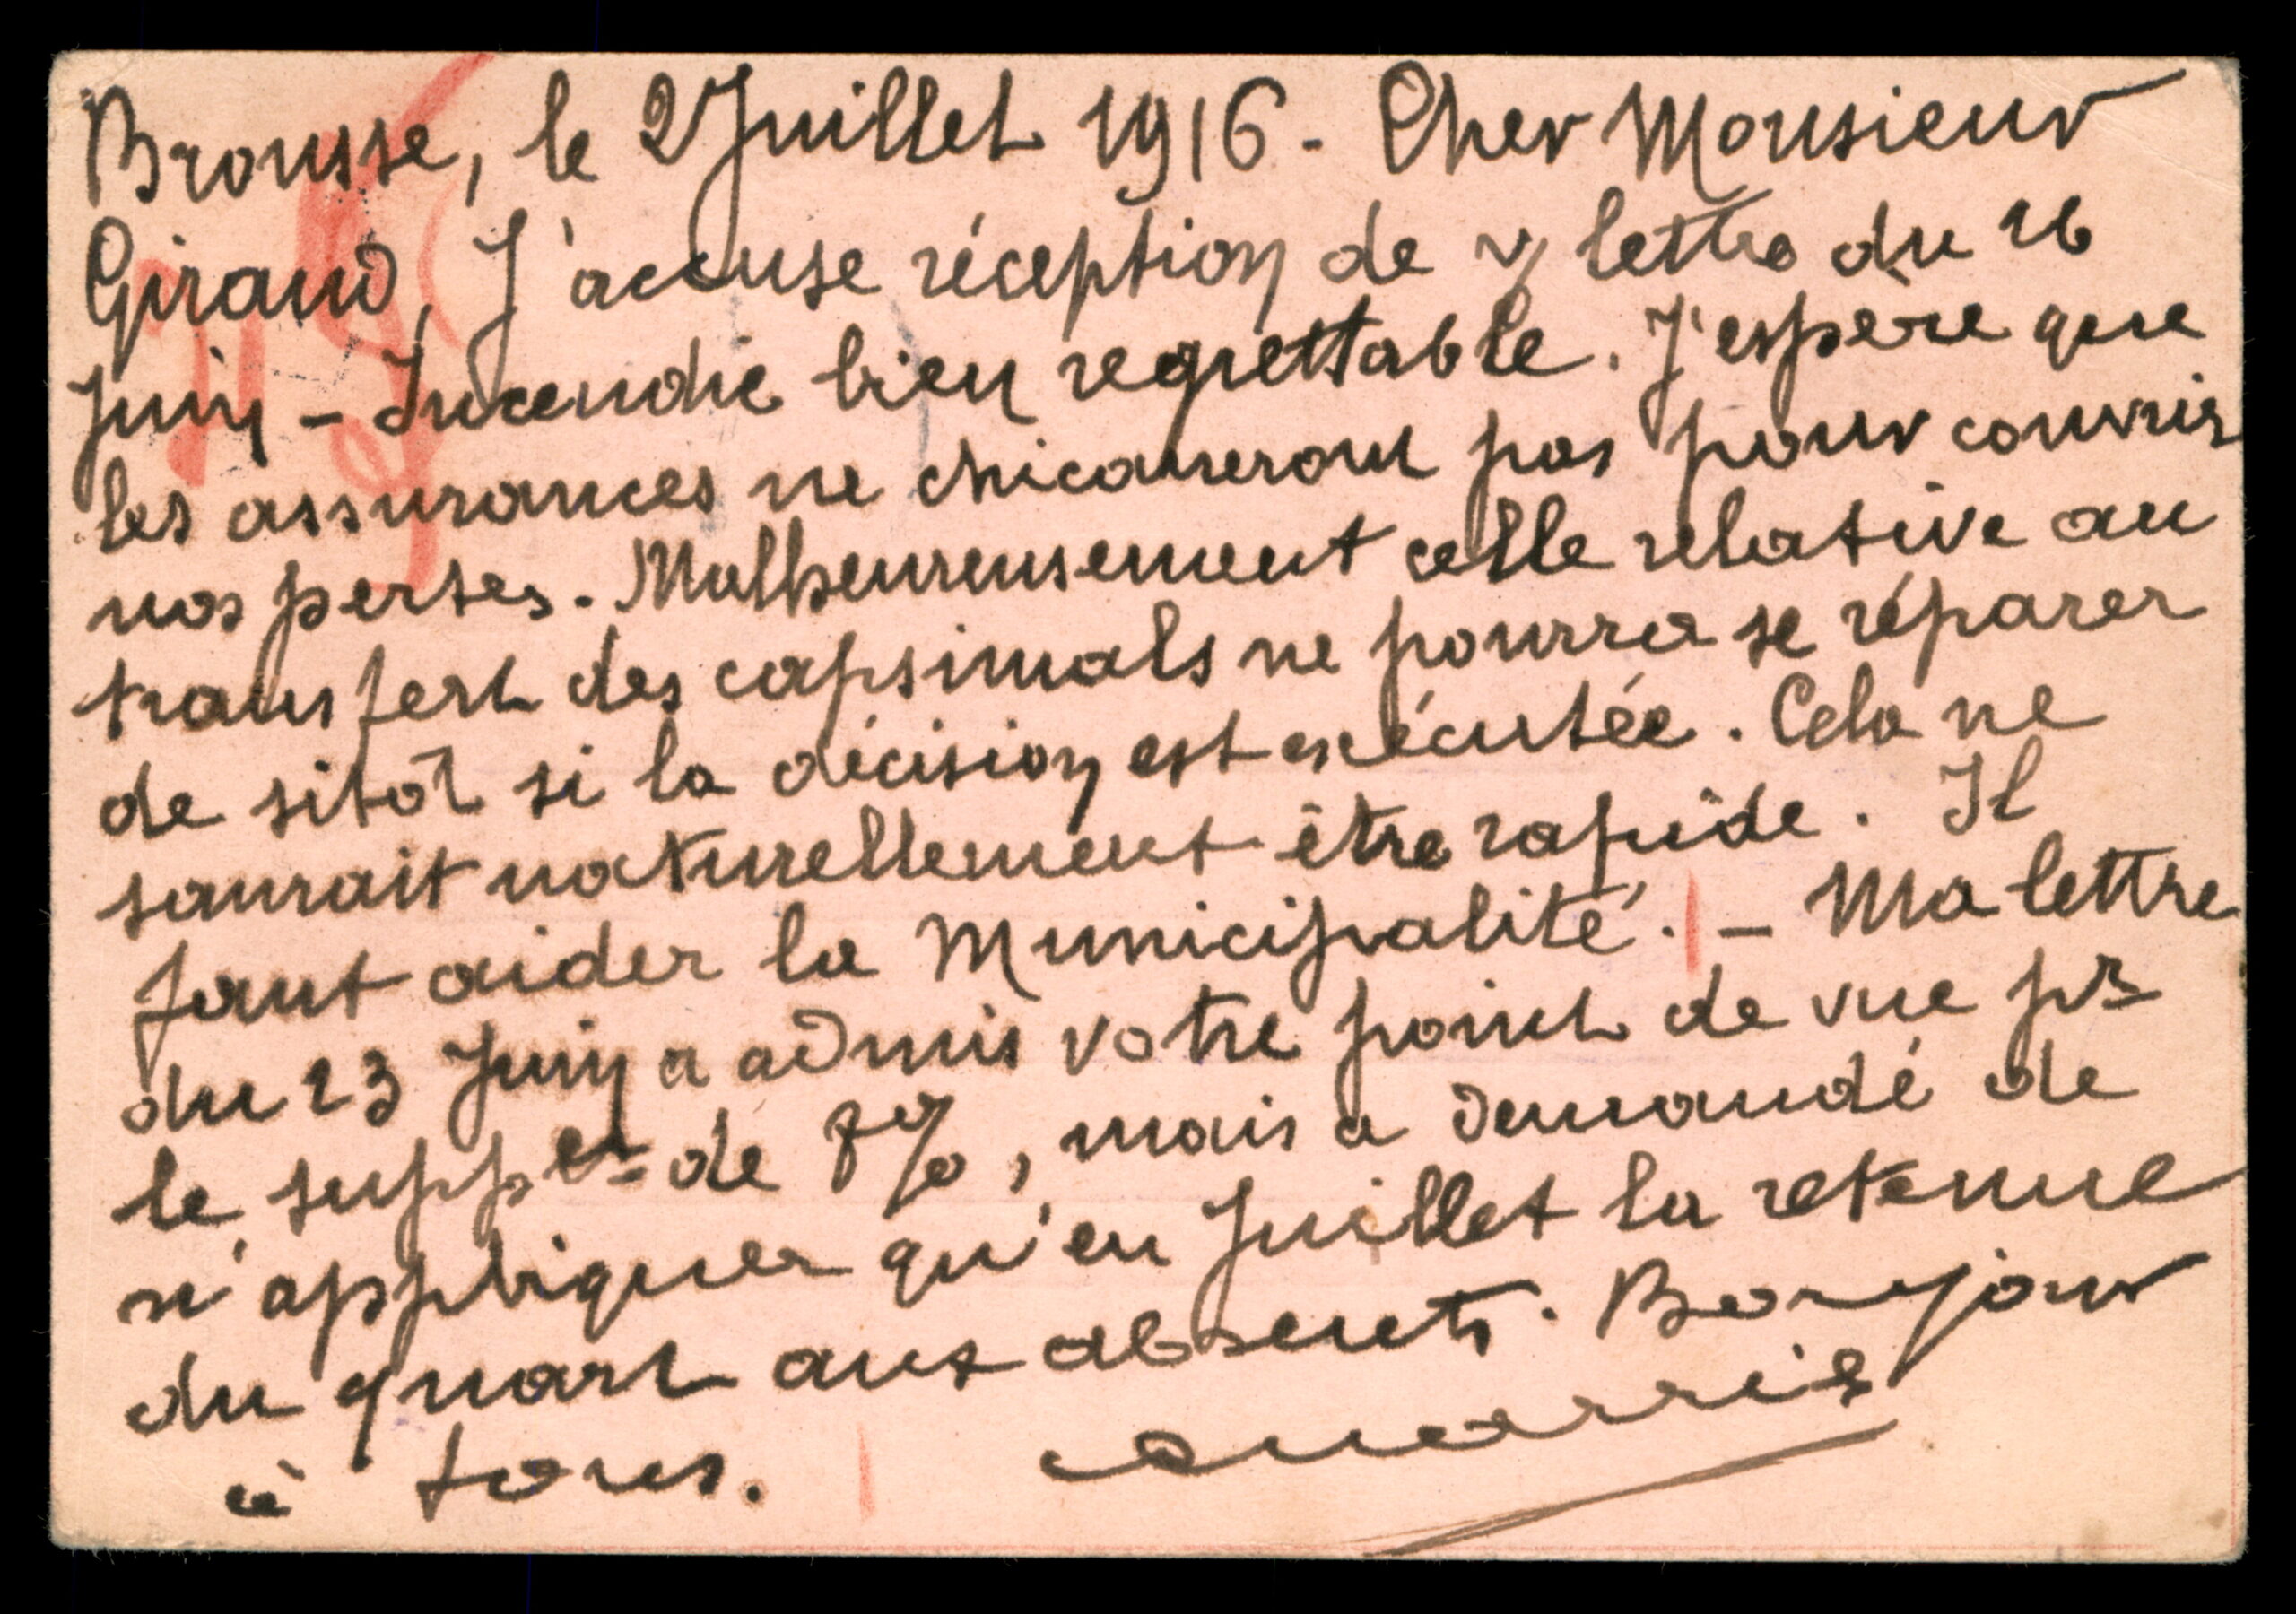 Brousse, le 2 Juillet 1916 - Cher Monsieur
Giraud, J'accuse réception de v/ lettre du 26
Juin - Incendie bien regrettable. J'espère que
les assurances ne chicaneront pas pour couvrir
nos pertes. Malheureusement celle relative au
transfert des capsimals ne pourra se réparer
de sitôt si la décision est exécutée. Cela ne
saurait naturellement être rapide. Il
faut aider la Municipalité. - Ma lettre
du 23 Juin a admis votre point de vue pr
le suppet de 7%, mais a demandé de
n'appliquer qu'en Juillet la retenue
du quart aux absents. Bonjour
à tous.